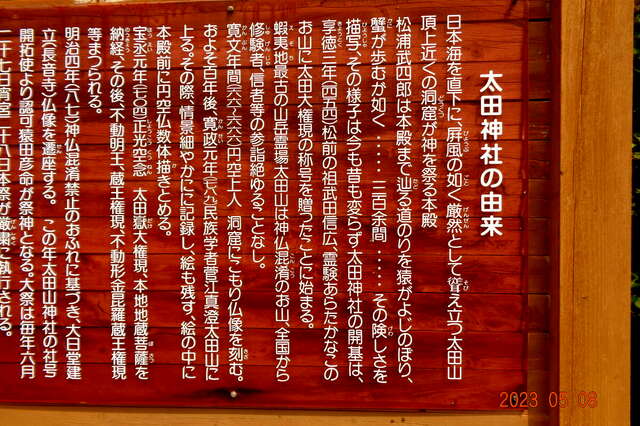 太田神社の由来
日本海を直下に、屏風の如く厳然として聳え立つ太田山
頂上近くの洞窟が神を祭る本殿
松浦武四郎は本殿まで辿る道のりを猿がよじのぼり、
蟹が歩むが如く・・・・・三百余間・・・・・その険しさを
描写、その様子は今も昔も変らず太田神社の開基は、
享徳三年(一四五四)松前の祖武田信広、霊験あらたかな、この
お山に太田大権現の称号を贈ったことに始まる。
蝦夷地最古の山岳霊場太田山は神仏混淆のお山、全国から
修験者、信者等の参詣絶ゆることなし。
寛文年間(一六六一〜六六)円空上人、洞窟にこもり仏像を刻む。
およそ百年後、寛政元年(一七八九)民族学者菅江真澄太田山に
上る。その際、情景細やかにに記録し、絵も残す、絵の中に
本殿前に円空仏数体描きとめる。
宝永元年(一七〇四)正光空念、太田嶽大権現、本地地蔵菩薩を
納経、その後、不動明王、蔵王権現、不動形金毘羅蔵王権現
等まつられる。
明治四年(一八七一)神仏混淆禁止のおふれに基づき、大日堂建
立(長音寺)仏像を遷座する。この年太田山神社の社号
開拓使より認可猿田彦命が祭神となる。大祭は毎年六月
二十七日宵宮二十八日本祭が厳粛に執行される。
2023 05 08